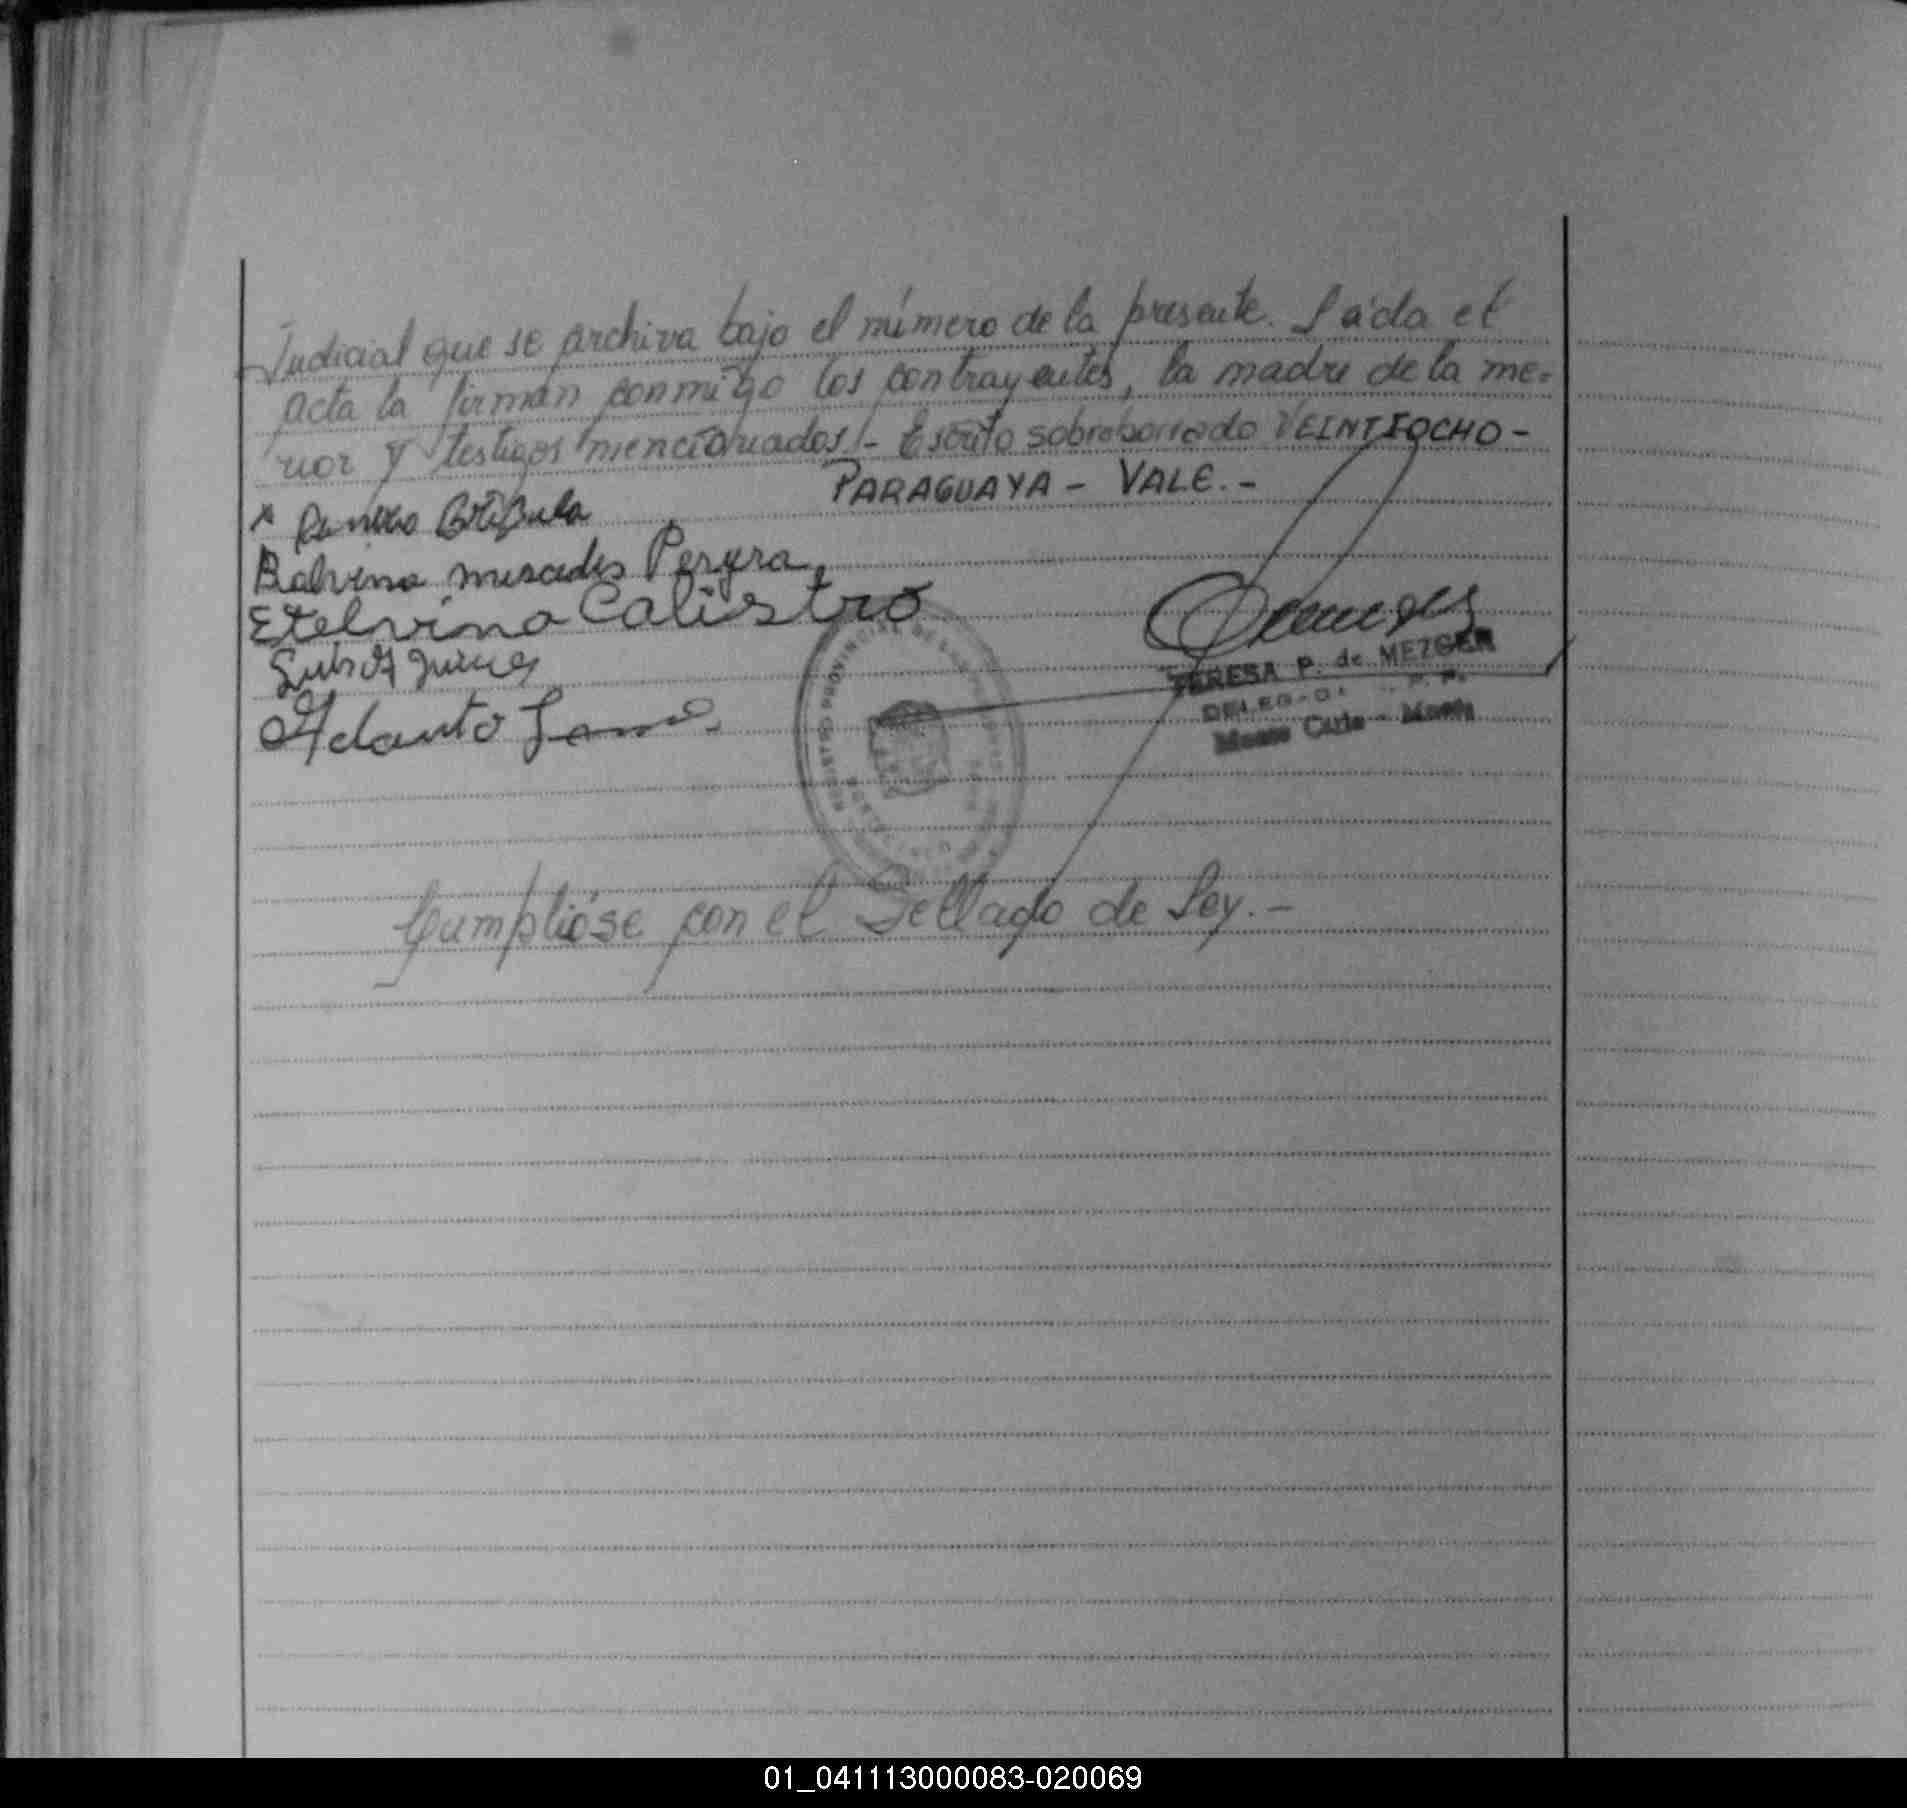 Judicial que se archiva bajo el número de la presente. Leída el
acta la firman conmigo los contrayentes, la madre de la me=
nor y testigos mencionados.- Escrito sobreborrado VEINTIOCHO -
PARAGUAYA - VALE.-
Balvina mercedes Pereyra
Etelvina Calistro
TERESA P. de MEZGER
Monte Carlo - Mnes
REGISTRO PROVINCIAL DE LAS PERSONAS
Cumplióse con el Sellado de Ley.-
01_041113000083-020069